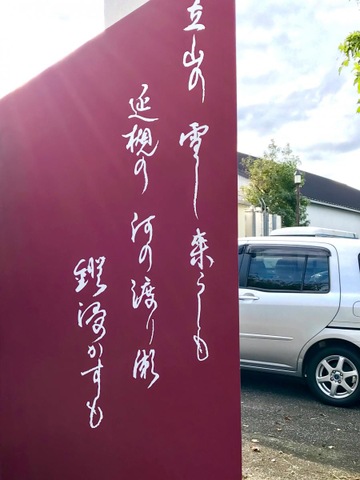 立山の 雪し来らしも
延槻の 河の渡り瀬
鐙浸かすも